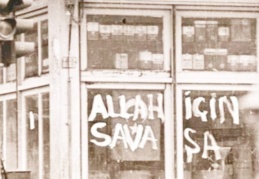 ALLAH İÇİN
SAVAŞA